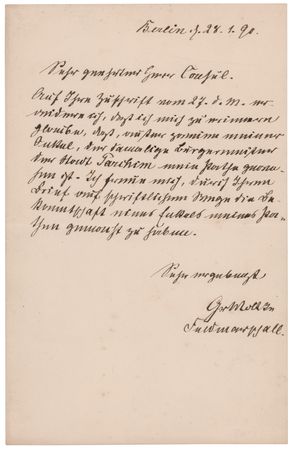 Berlin d. 28. 1. 90.
Sehr geehrter Herr Consul.
Auf Ihre Zuschrift vom 27. d. M. er-
widere ich, daß ich mich zu erinnern
glaube, daß, außer zweien meiner
Onkel, der damalige Bürgermeister
der Stadt Parchim mein Pathe gewe-
sen ist. Ich freue mich, durch Ihren
Brief auf schriftlichem Wege die Be-
kanntschaft eines Enkels meines Pa-
then gemacht zu haben.
Sehr ergebenst
Gr Moltke
Feldmarschall.